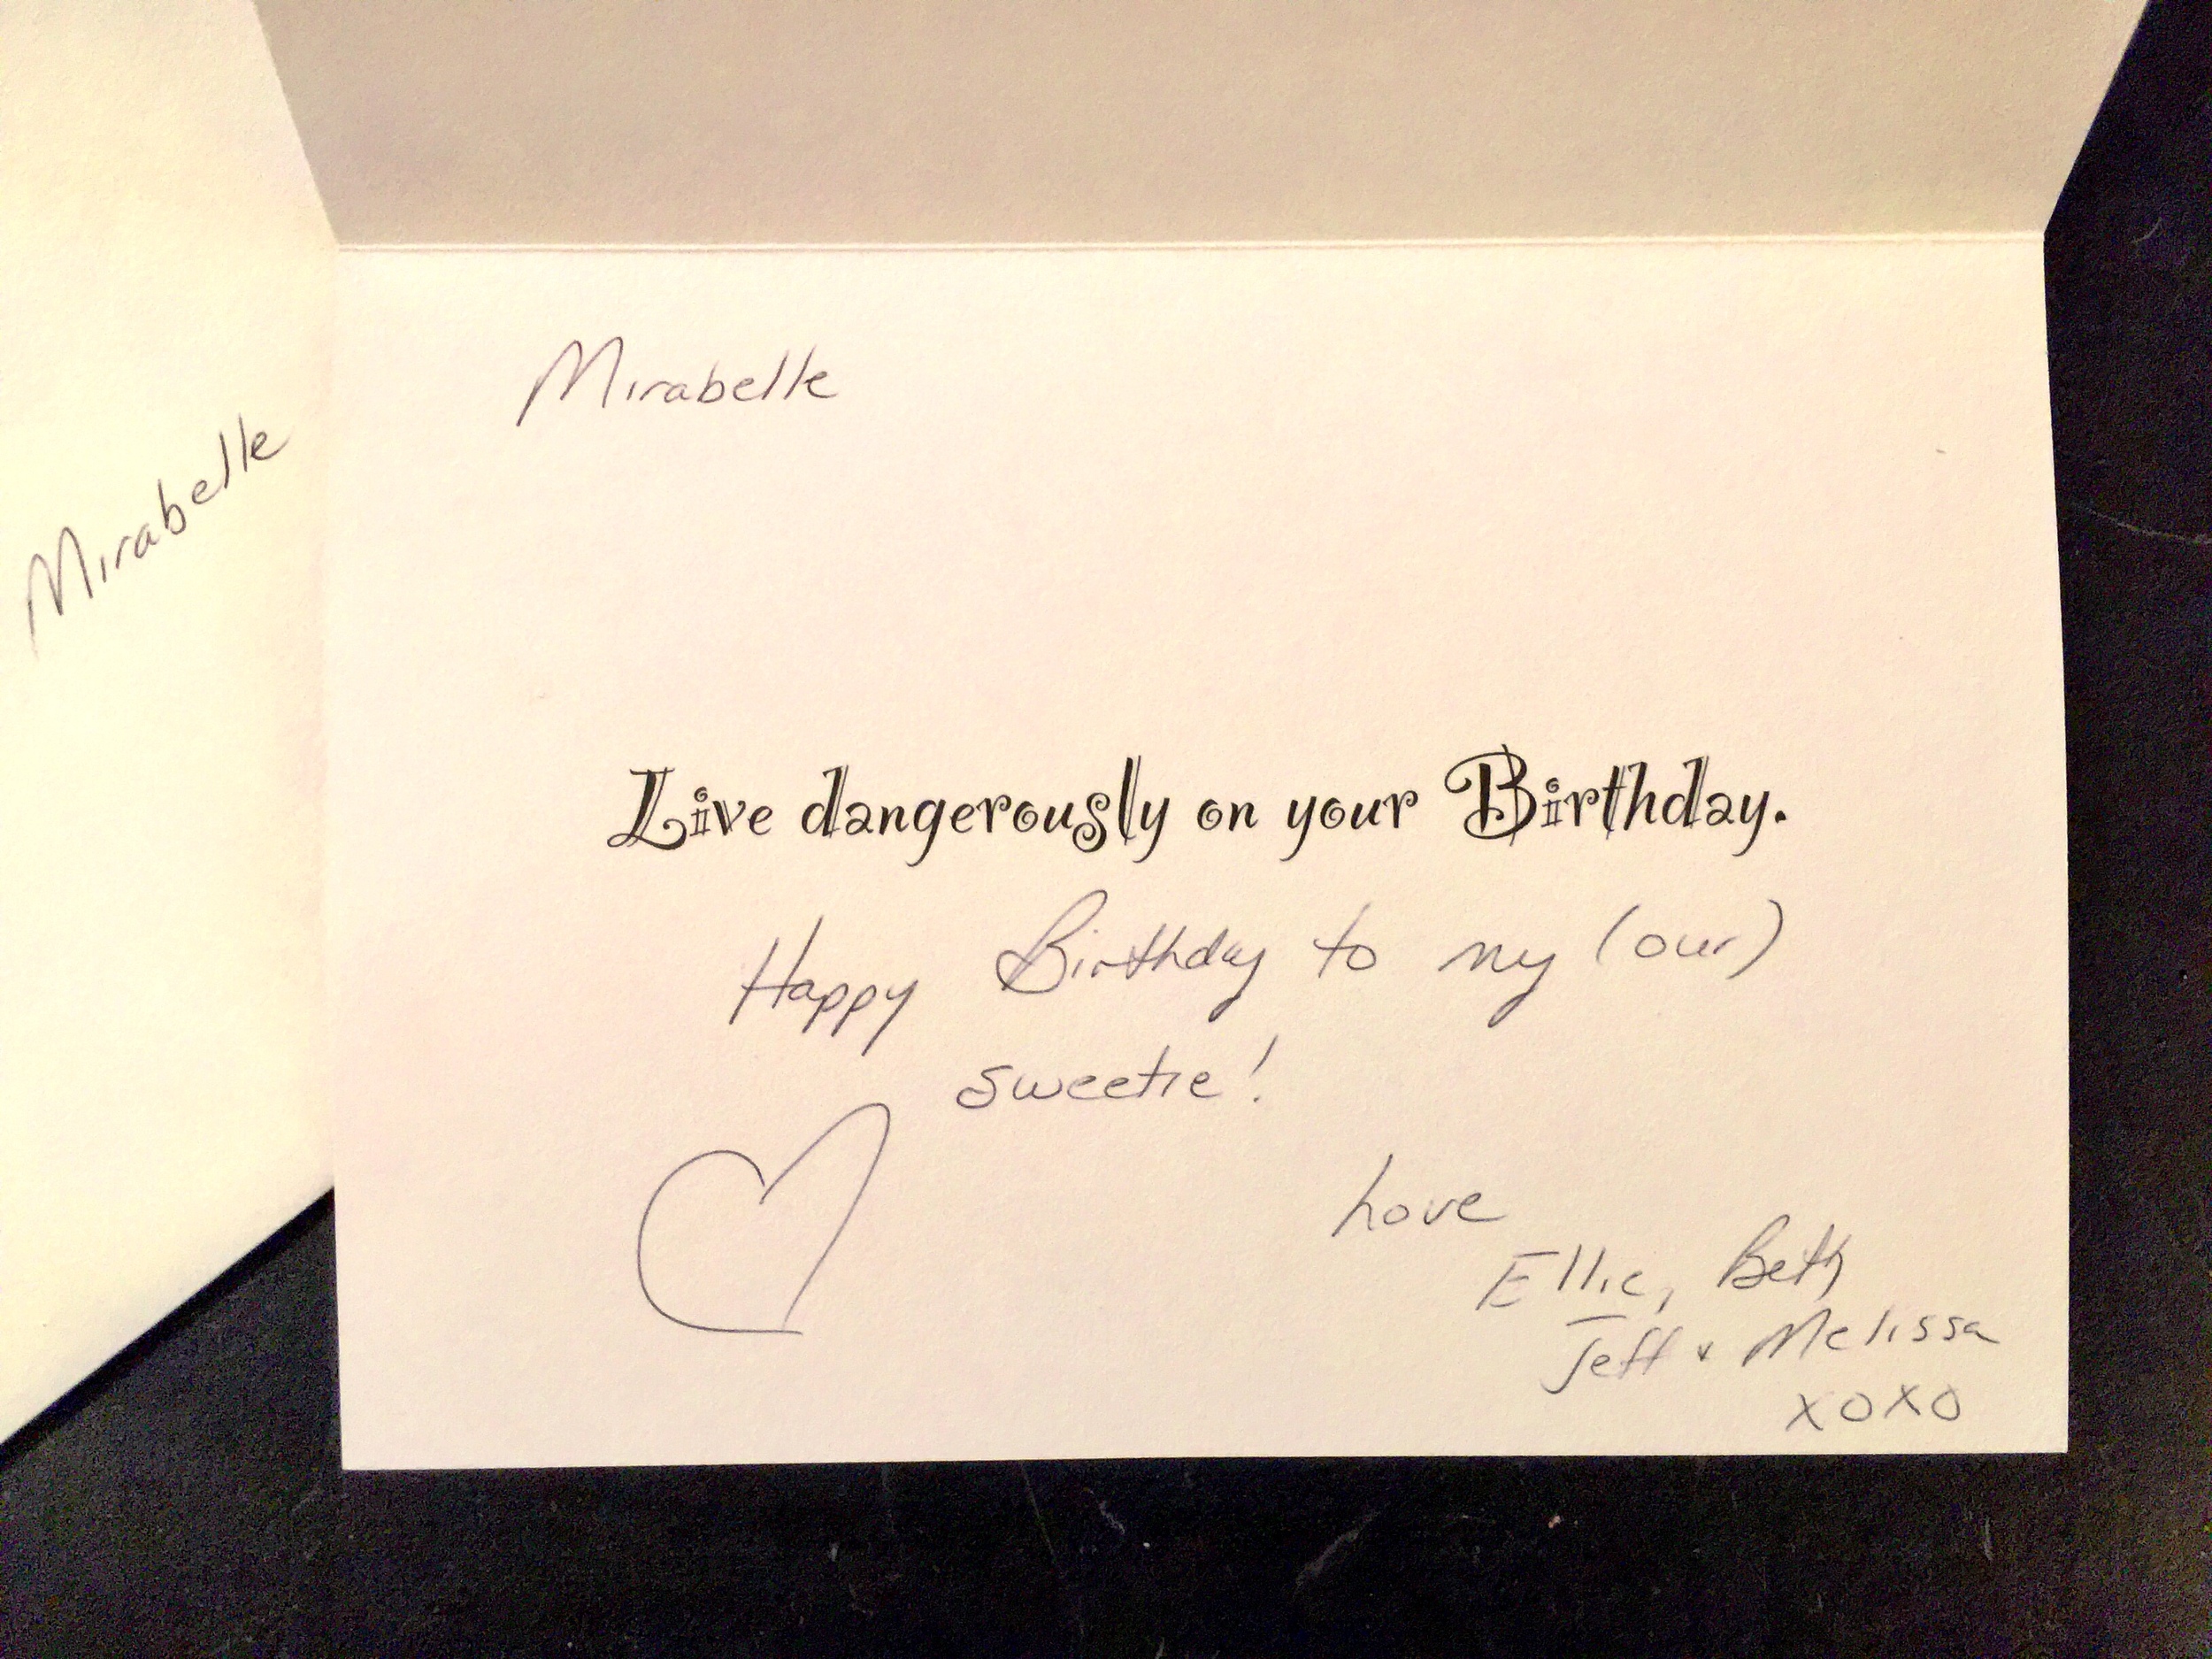 Mirabelle
Mirabelle
Live dangerously on your Birthday.
Happy Birthday to my (our)
sweetie!
Love
Ellie, Beth
Jeff + Melissa
xoxo